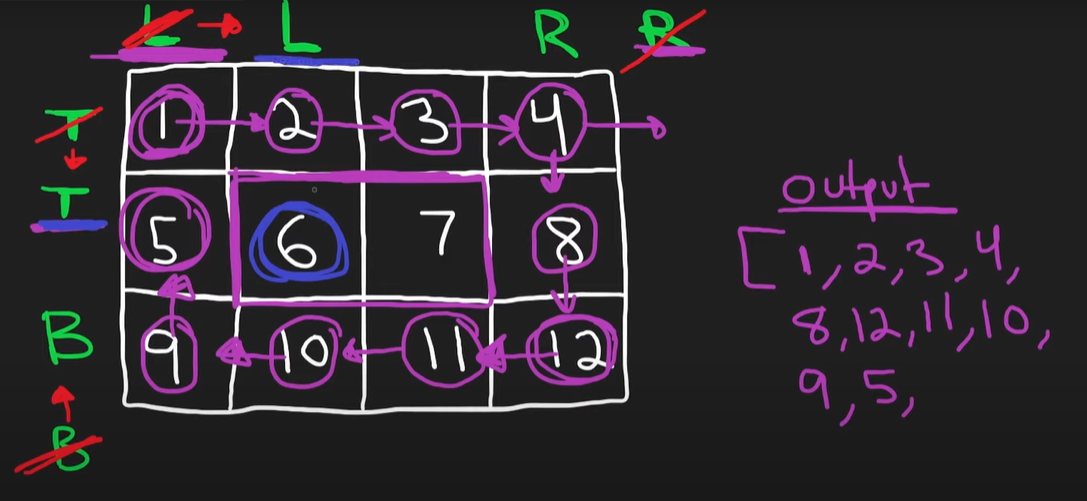 L L R R
T
1 2 3 4
T
5 6 7 8
B
9 10 11 12
B
output
[1, 2, 3, 4,
8, 12, 11, 10,
9, 5,